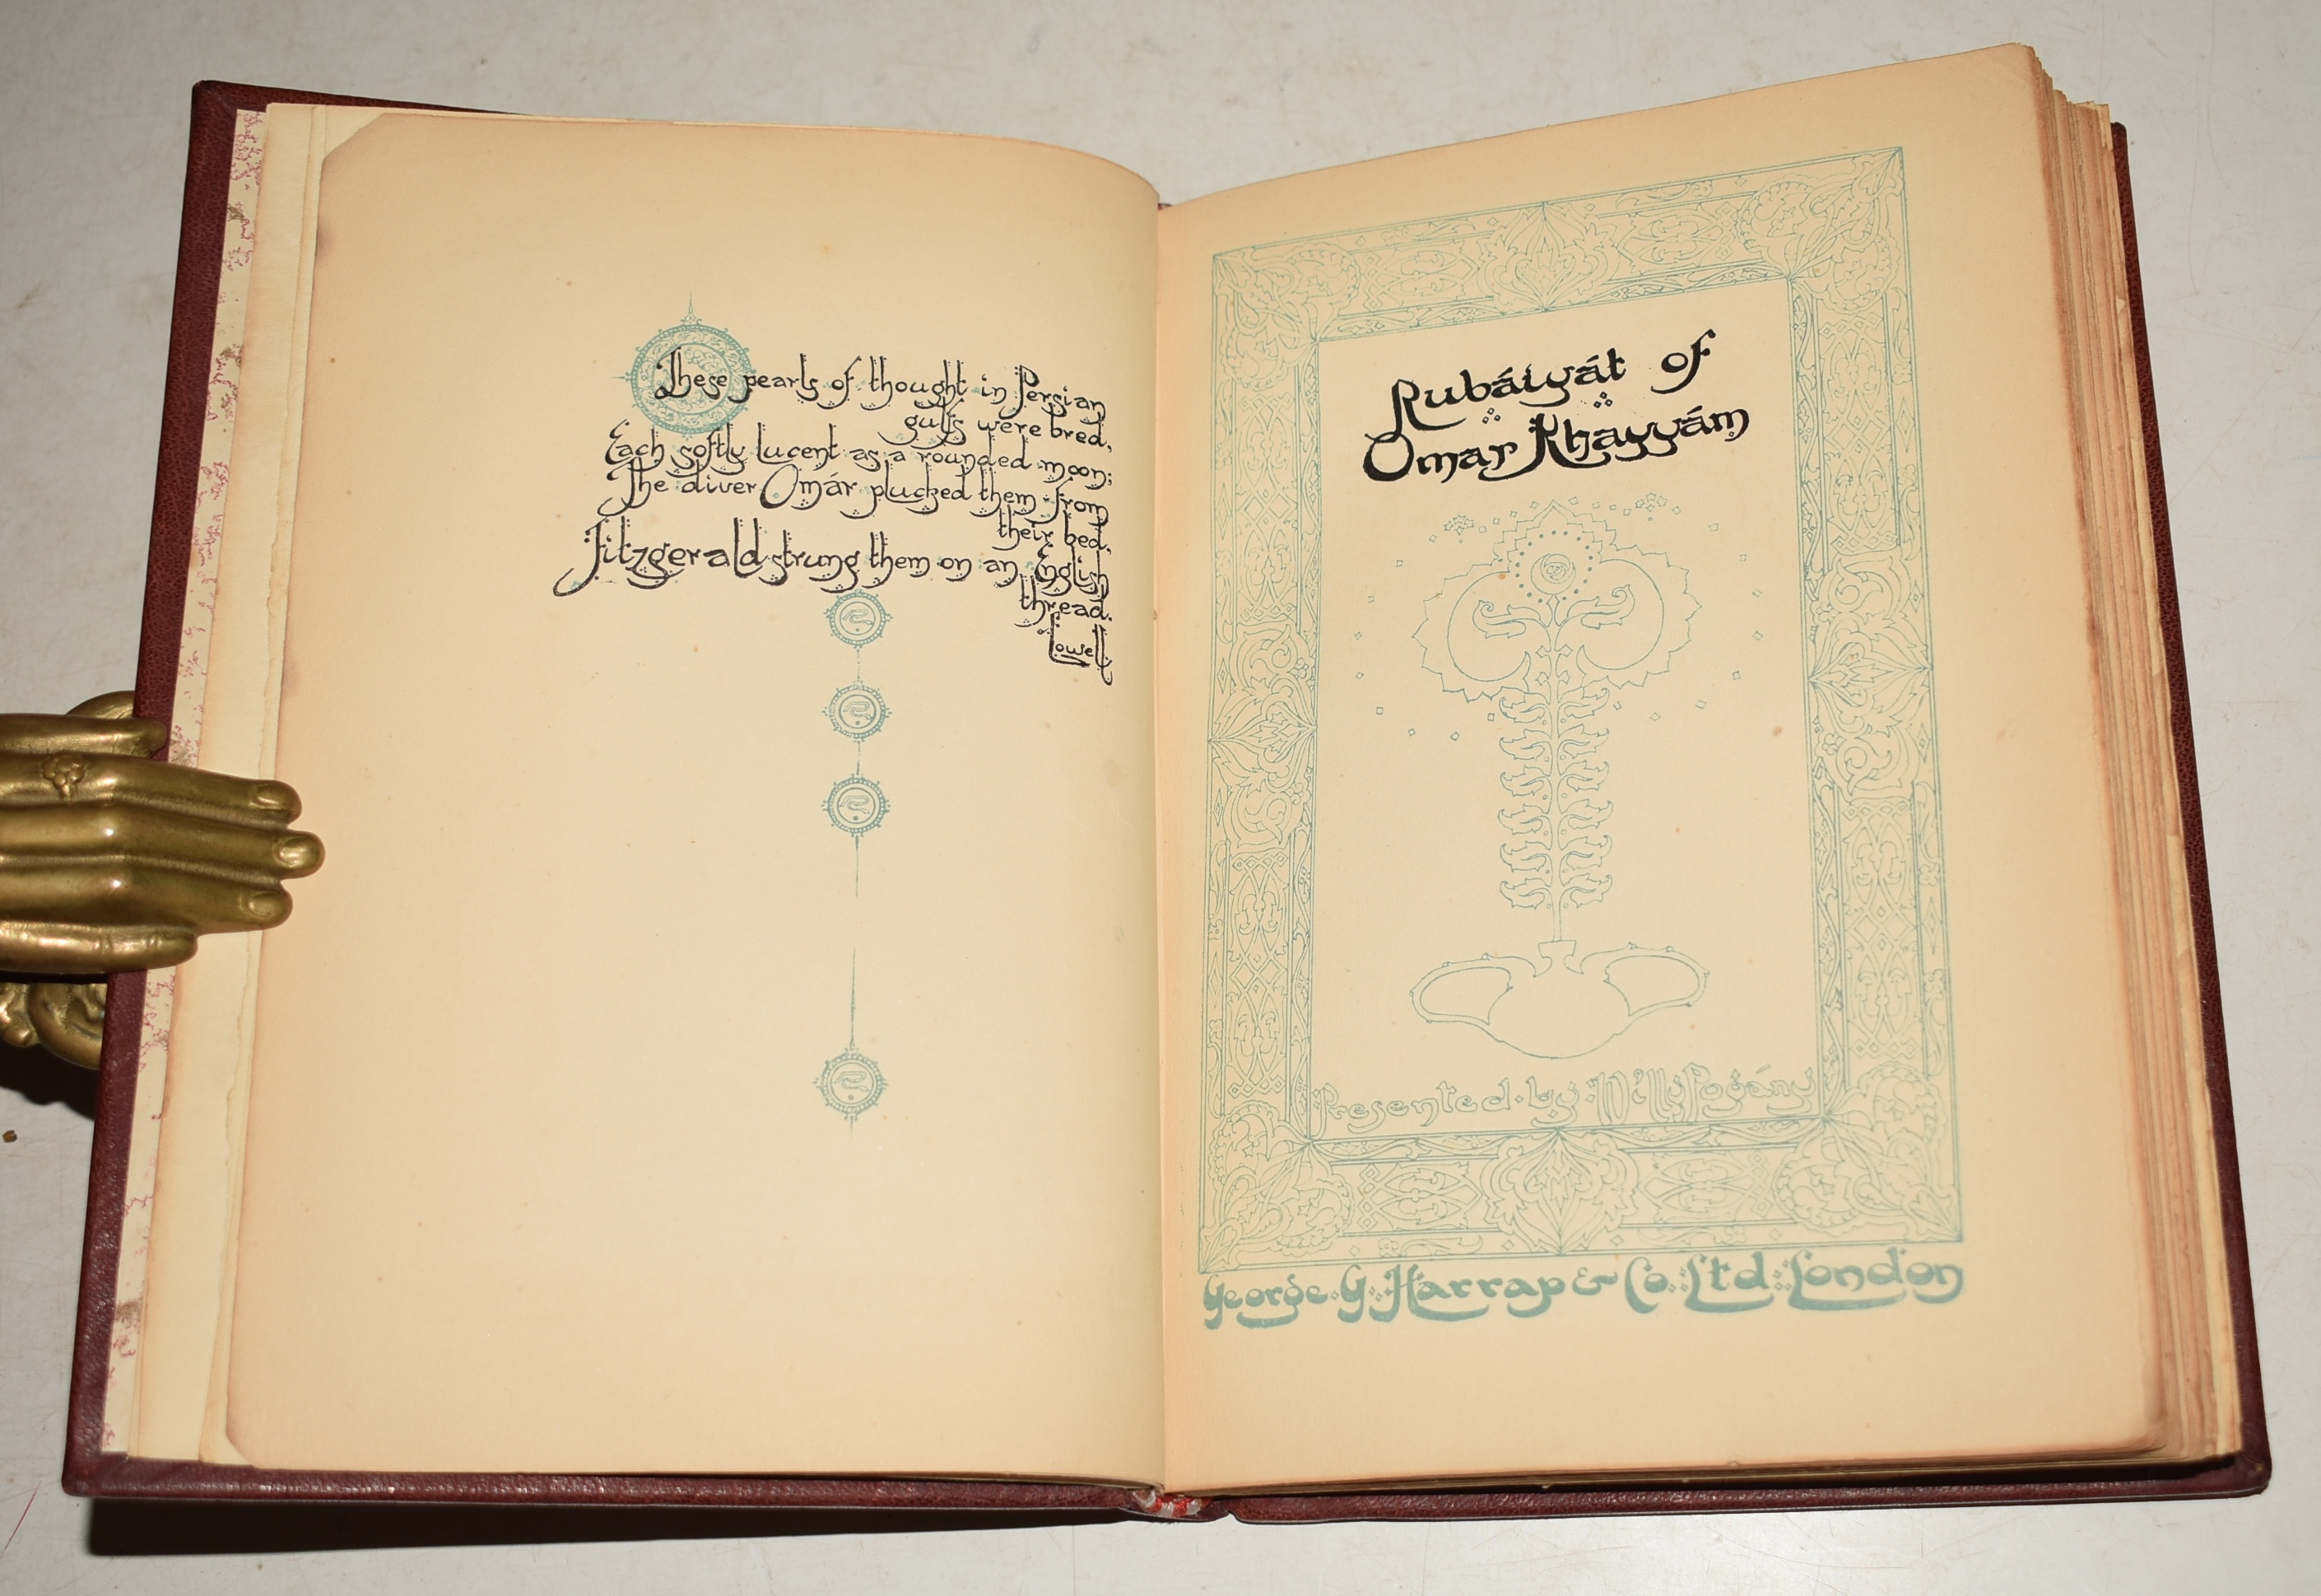 These pearls of thought in Persian
gulfs were bred,
Each softly lucent as a rounded moon;
The diver Omár plucked them from
their bed,
Fitzgerald strung them on an English
thread.
Lowell
Rubáiyát of
Omar Khayyám
Presented · by · Willy Pogány
George · G · Harrap & Co · Ltd · London